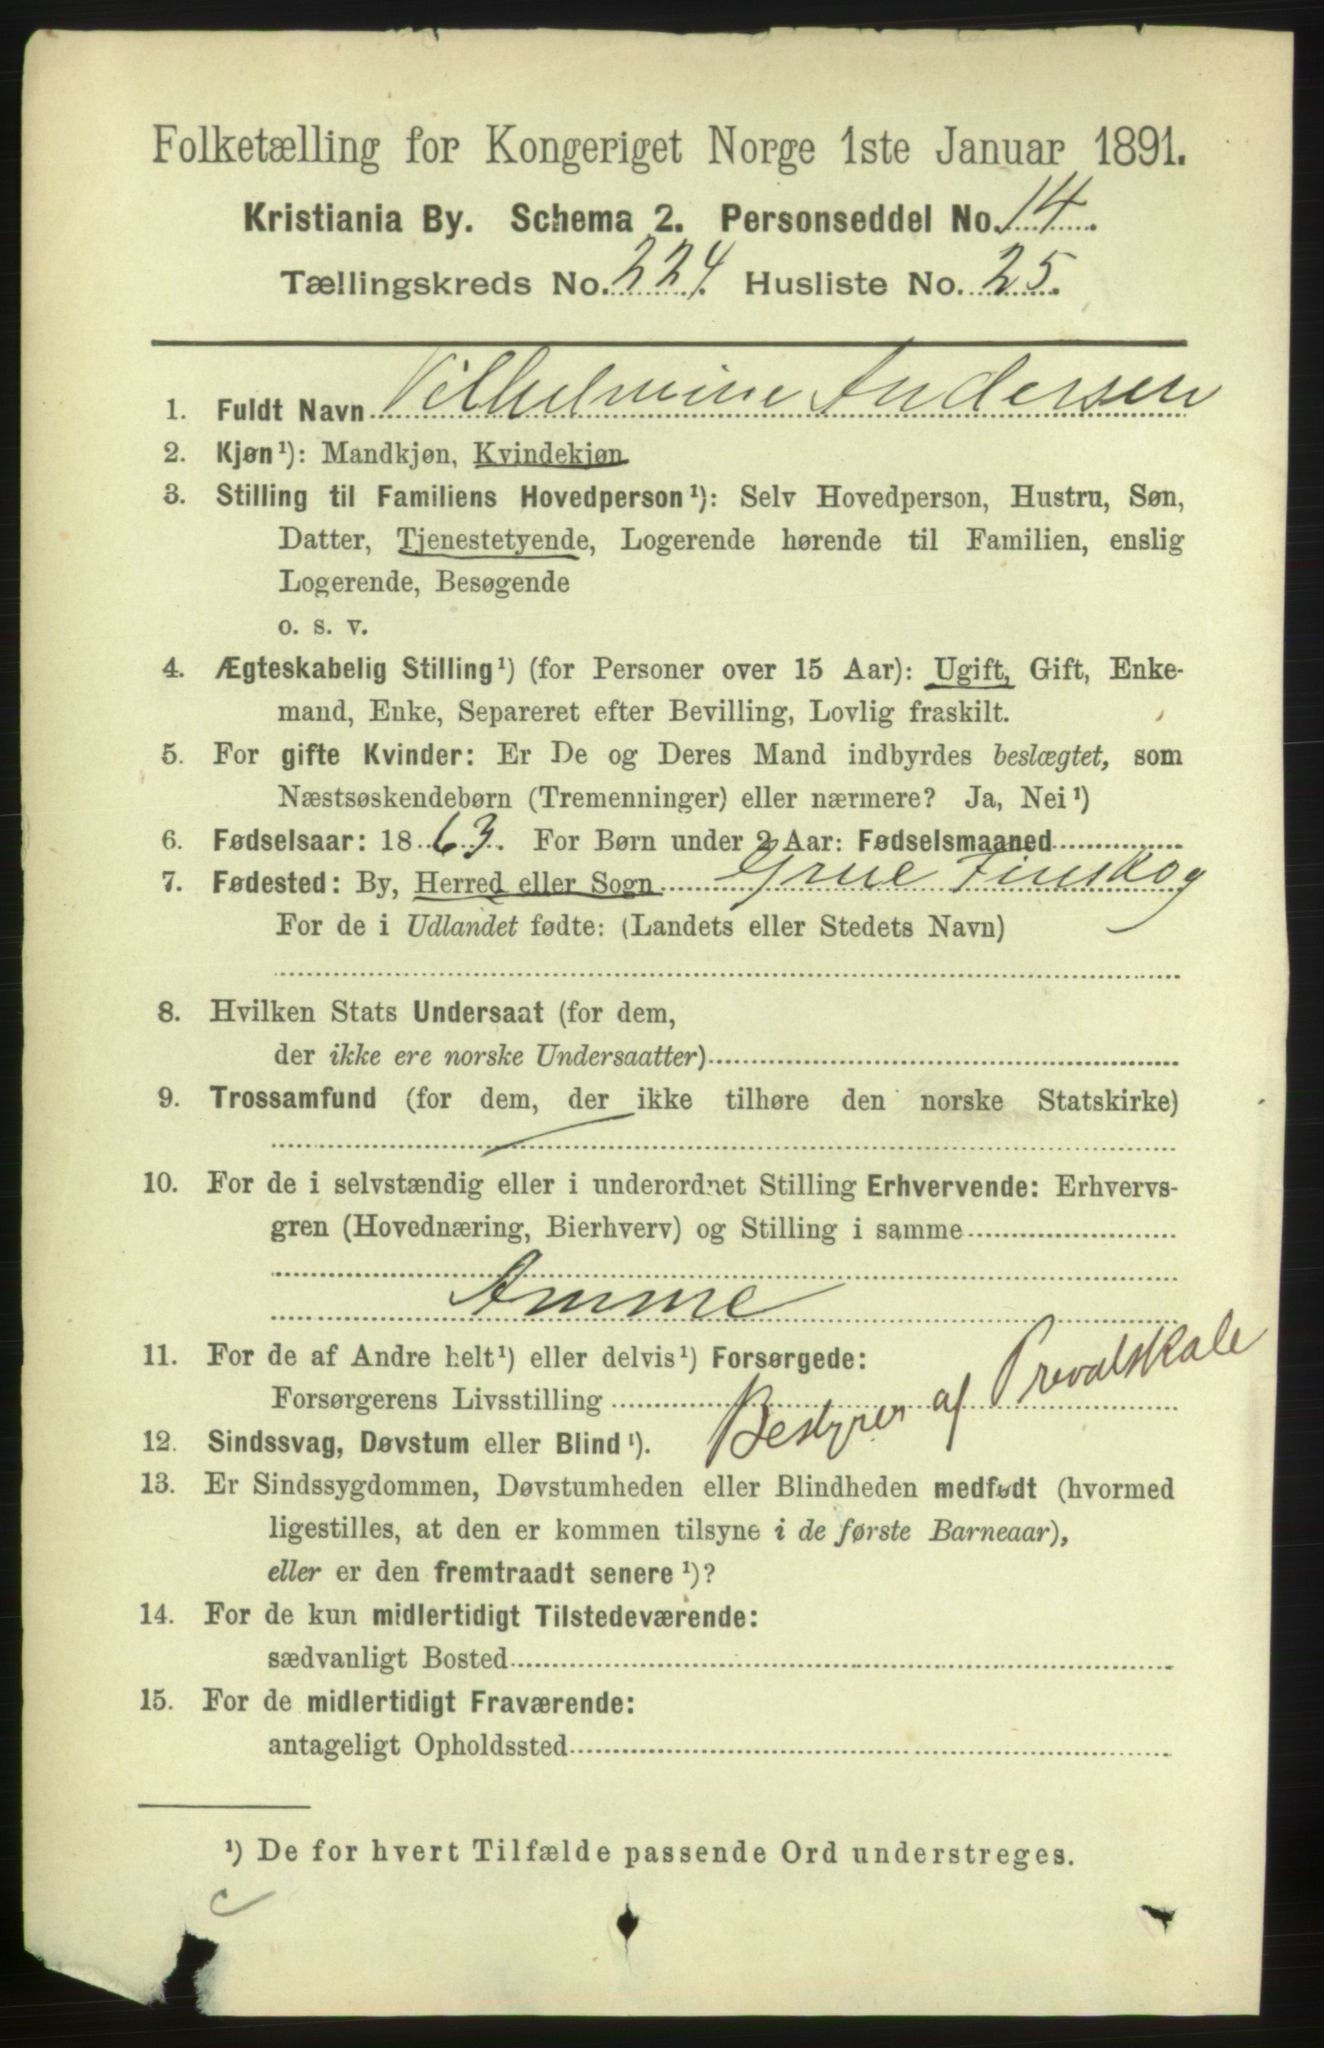 Folketælling for Kongeriget Norge 1ste Januar 1891.
Kristiania By. Schema 2. Personseddel No. 14.
Tællingskreds No. 224. Husliste No. 25.
1. Fuldt Navn Vilhelmine Andersen
2. Kjøn¹): Mandkjøn, Kvindekjøn
3. Stilling til Familiens Hovedperson¹): Selv Hovedperson, Hustru, Søn,
Datter, Tjenestetyende, Logerende hørende til Familien, enslig
Logerende, Besøgende
o. s. v.
4. Ægteskabelig Stilling¹) (for Personer over 15 Aar): Ugift, Gift, Enke-
mand, Enke, Separeret efter Bevilling, Lovlig fraskilt.
5. For gifte Kvinder: Er De og Deres Mand indbyrdes beslægtet, som
Næstsøskendebørn (Tremenninger) eller nærmere? Ja, Nei¹)
6. Fødselsaar: 1863. For Børn under 2 Aar: Fødselsmaaned
7. Fødested: By, Herred eller Sogn Grue Finskog
For de i Udlandet fødte: (Landets eller Stedets Navn)
8. Hvilken Stats Undersaat (for dem,
der ikke ere norske Undersaatter)
9. Trossamfund (for dem, der ikke tilhøre den norske Statskirke)
10. For de i selvstændig eller i underordnet Stilling Erhvervende: Erhvervs-
gren (Hovednæring, Bierhverv) og Stilling i samme
Amme
11. For de af Andre helt¹) eller delvis¹) Forsørgede:
Forsørgerens Livsstilling
Bestyrer af Prevalskale
12. Sindssvag, Døvstum eller Blind¹).
13. Er Sindssygdommen, Døvstumheden eller Blindheden medfødt (hvormed
ligestilles, at den er kommen tilsyne i de første Barneaar),
eller er den fremtraadt senere¹)?
14. For de kun midlertidigt Tilstedeværende:
sædvanligt Bosted
15. For de midlertidigt Fraværende:
antageligt Opholdssted
¹) De for hvert Tilfælde passende Ord understreges.